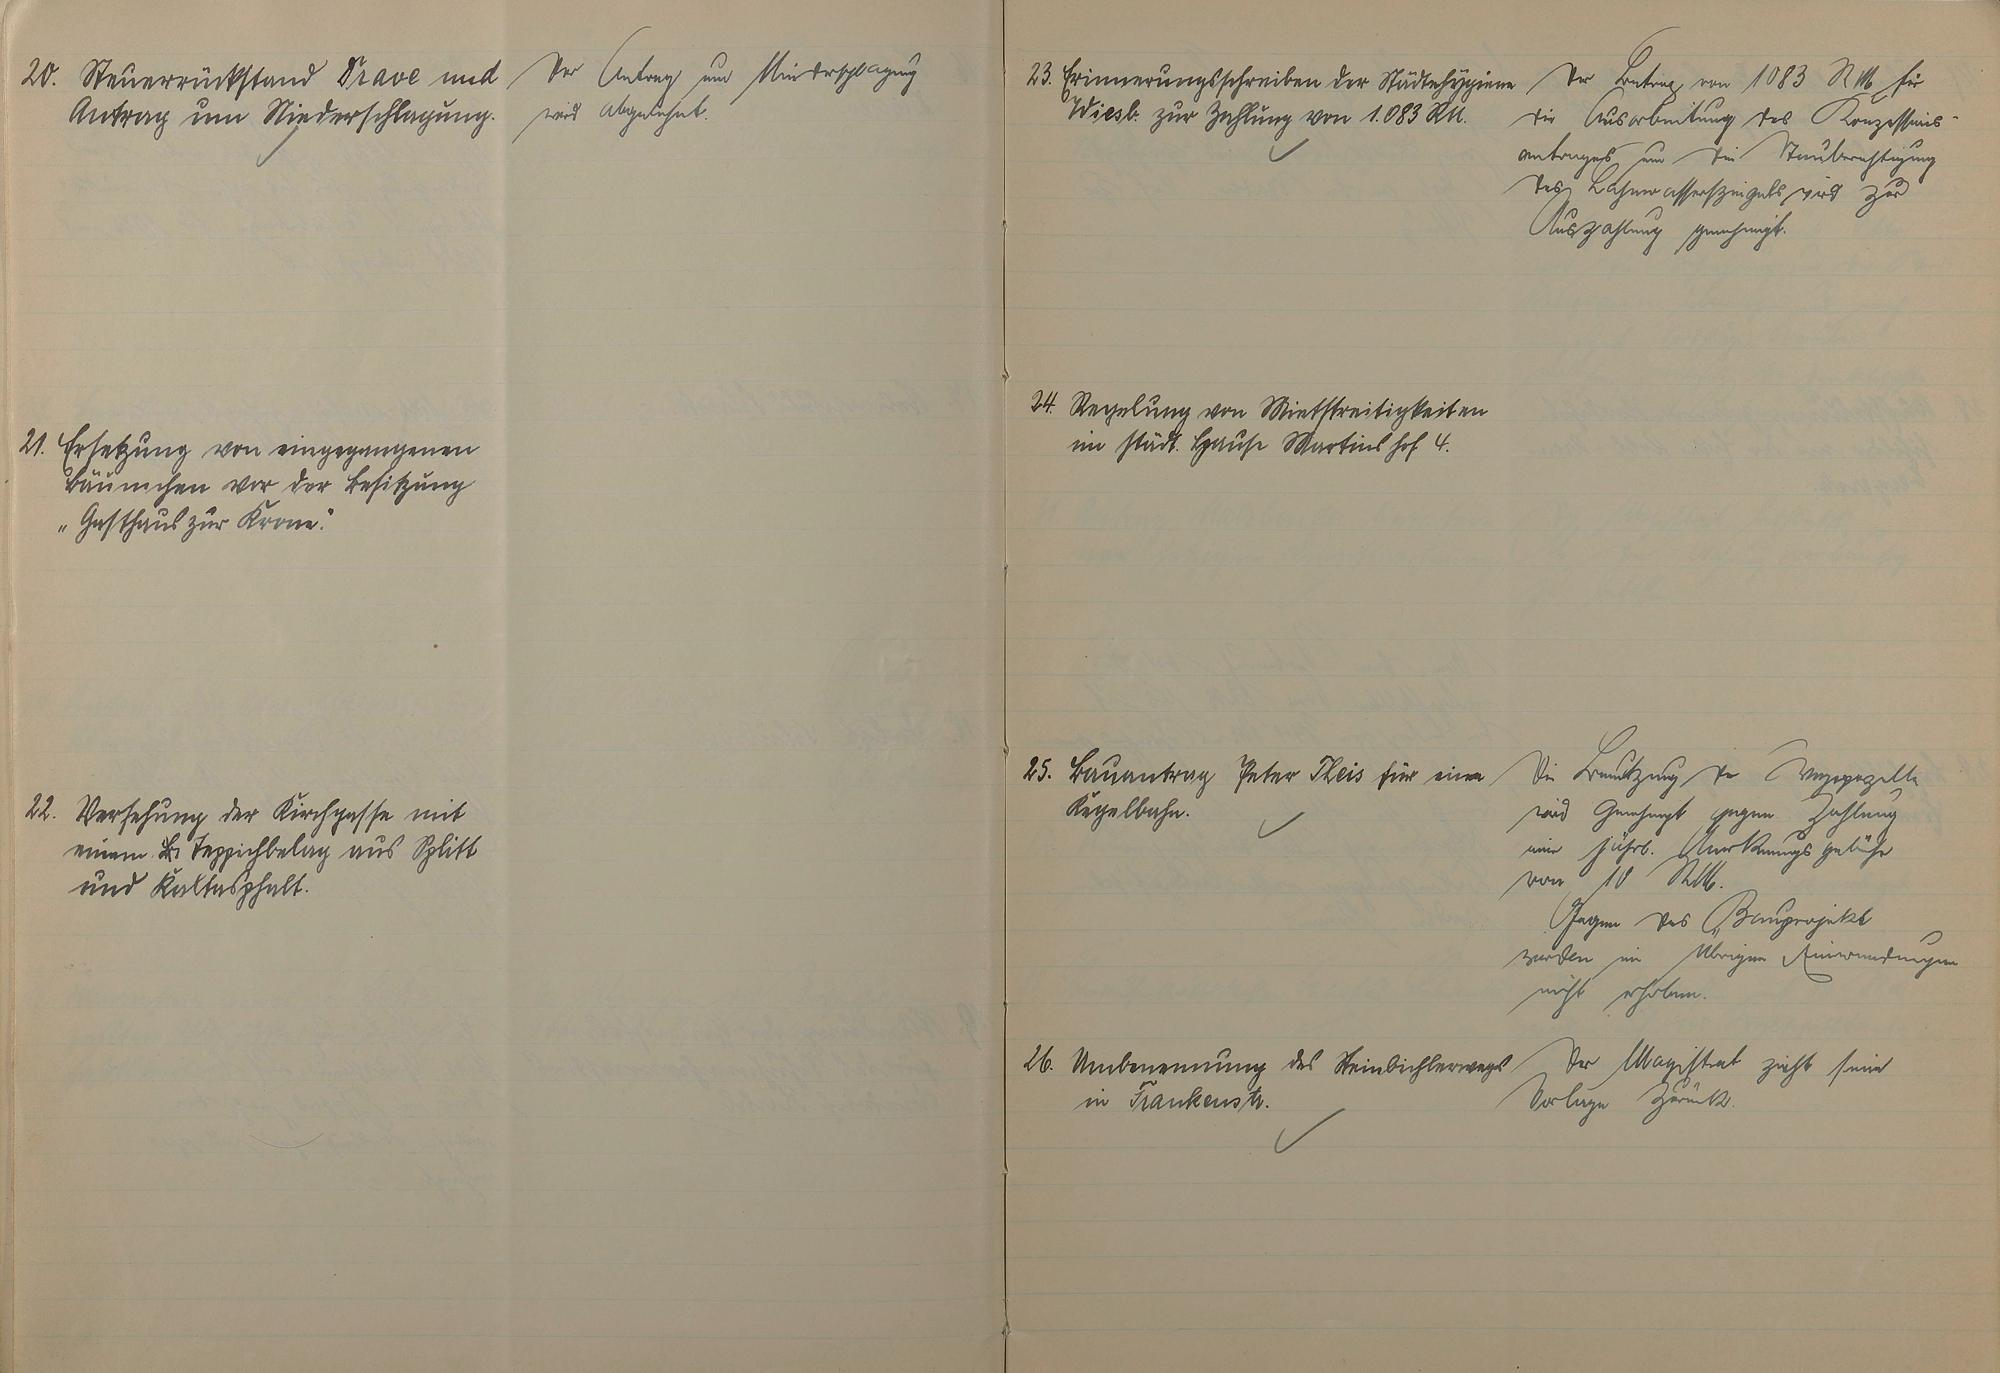 20. Steuerrückstand Drave und
Antrag um Niederschlagung.
Der Antrag um Niederschlagung
wird abgelehnt.
21. Ersetzung von eingegangenen
Bäumchen vor der Besitzung
„Gasthaus zur Krone".
22. Versehung der Kirchgasse mit
einem Teppichbelag aus Splitt
und Kaltasphalt.
23. Erinnerungsschreiben der Städtehygiene
Wiesb. zur Zahlung von 1.083 RM.
Der Betrag von 1083 RM für
die Ausarbeitung des Konzessions-
antrages um die Stauberechtigung
des Lahnwasserspiegels wird zur
Auszahlung genehmigt.
24. Regelung von Mietstreitigkeiten
im städt. Hause Martinshof 4.
25. Bauantrag Peter Theis für eine
Kegelbahn.
Die Benutzung der Wegeparzelle
wird genehmigt gegen Zahlung
einer jährl. Anerkennungsgebühr
von 10 RM.
Gegen das Bauprojekt
werden im Übrigen Einwendungen
nicht erhoben.
26. Umbenennung des Steinbichlerwegs
in Frankenstr.
Der Magistrat zieht seine
Vorlage zurück.